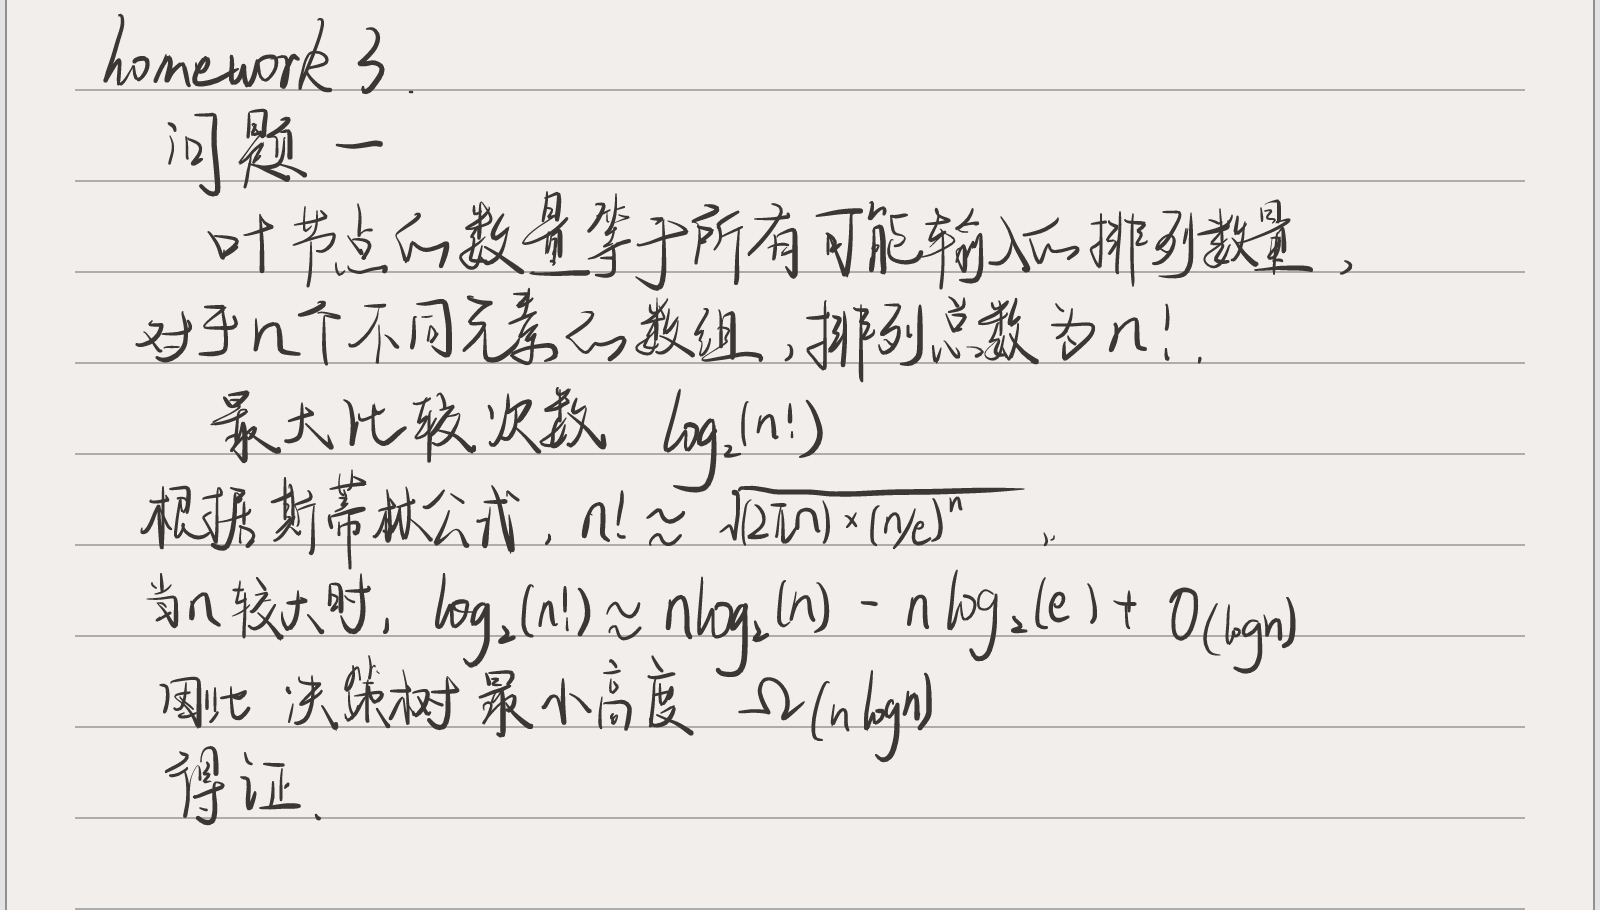 homework 3.
问题一
叶节点的数量等于所有可能输入的排列数量,
对于n个不同元素的数组,排列总数为n!.
最大比较次数 log₂(n!)
根据斯蒂林公式, n! ≈ √(2πn) × (n/e)ⁿ ,
当n较大时, log₂(n!) ≈ nlog₂(n) - nlog₂(e) + O(logn)
因此 决策树最小高度 Ω(nlogn)
得证.